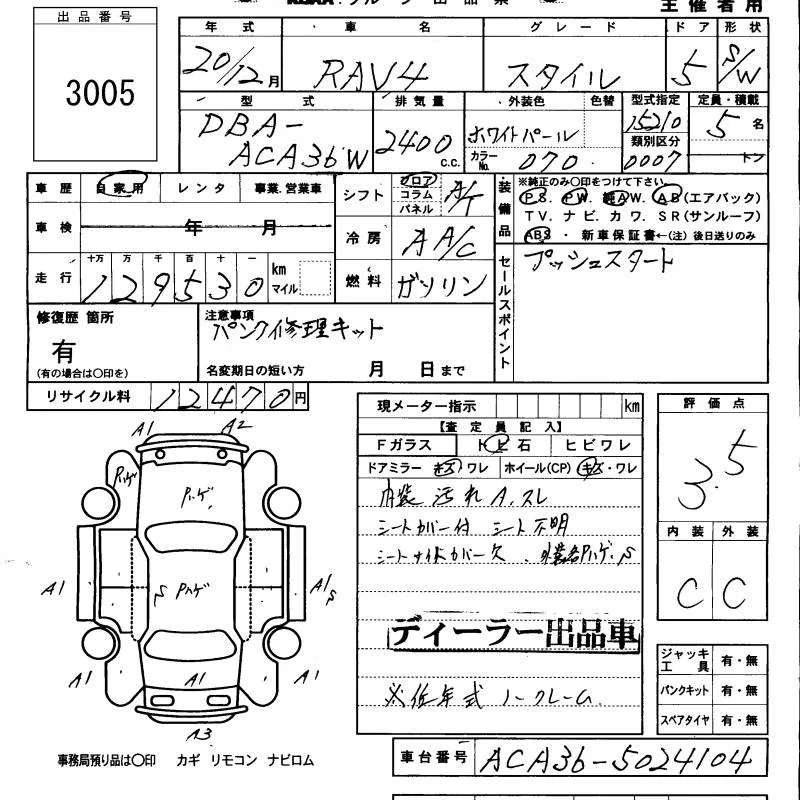 主催者用
出品番号
3005
年式 車名 グレード ドア 形状
20/12月 RAV4 スタイル 5 S/W
型式 排気量 外装色 色替 型式指定 定員・積載
DBA-ACA36W 2400c.c. ホワイトパール 15210 5名
カラーNo. 070 類別区分 0007 トン
車歴 自家用 レンタ 事業.営業車
シフト フロア コラム パネル A/T
車検 年 月
冷房 A A/C
走行 十万 万 千 百 十 一
129530 km マイル
燃料 ガソリン
装備品 ※純正のみ〇印をつけて下さい。
PS. PW. 純AW. AB(エアバック)
TV. ナビ. カワ. SR(サンルーフ)
ABS・新車保証書←(注)後日送りのみ
セールスポイント
プッシュスタート
修復歴 箇所
有
(有の場合は〇印を)
注意事項
パンク修理キット
名変期日の短い方 月 日まで
リサイクル料 12470円
現メーター指示 km
【査定員記入】
Fガラス トビ石 ヒビワレ
ドアミラー キズ・ワレ ホイール(CP) キズ・ワレ
内装 汚れ A.スレ
シートカバー付 シート不明
シートサイドカバー欠. 外装各Pハゲ.S
ディーラー出品車
※低年式 ノークレーム
評価点
3.5
内装 外装
C C
ジャッキ工具 有・無
パンクキット 有・無
スペアタイヤ 有・無
A1 A2
Pハゲ
Pハゲ
S Pハゲ
A1 A1 S
A1 A1 A1
A3
事務局預り品は〇印 カギ リモコン ナビロム
車台番号 ACA36-5024104